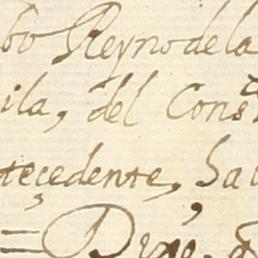 bo Reyno de la
ila, del Cons
tecedente, Sa
=